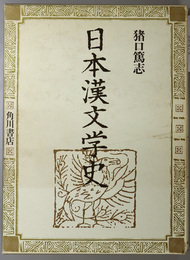 猪口篤志
日本漢文学史
角川書店